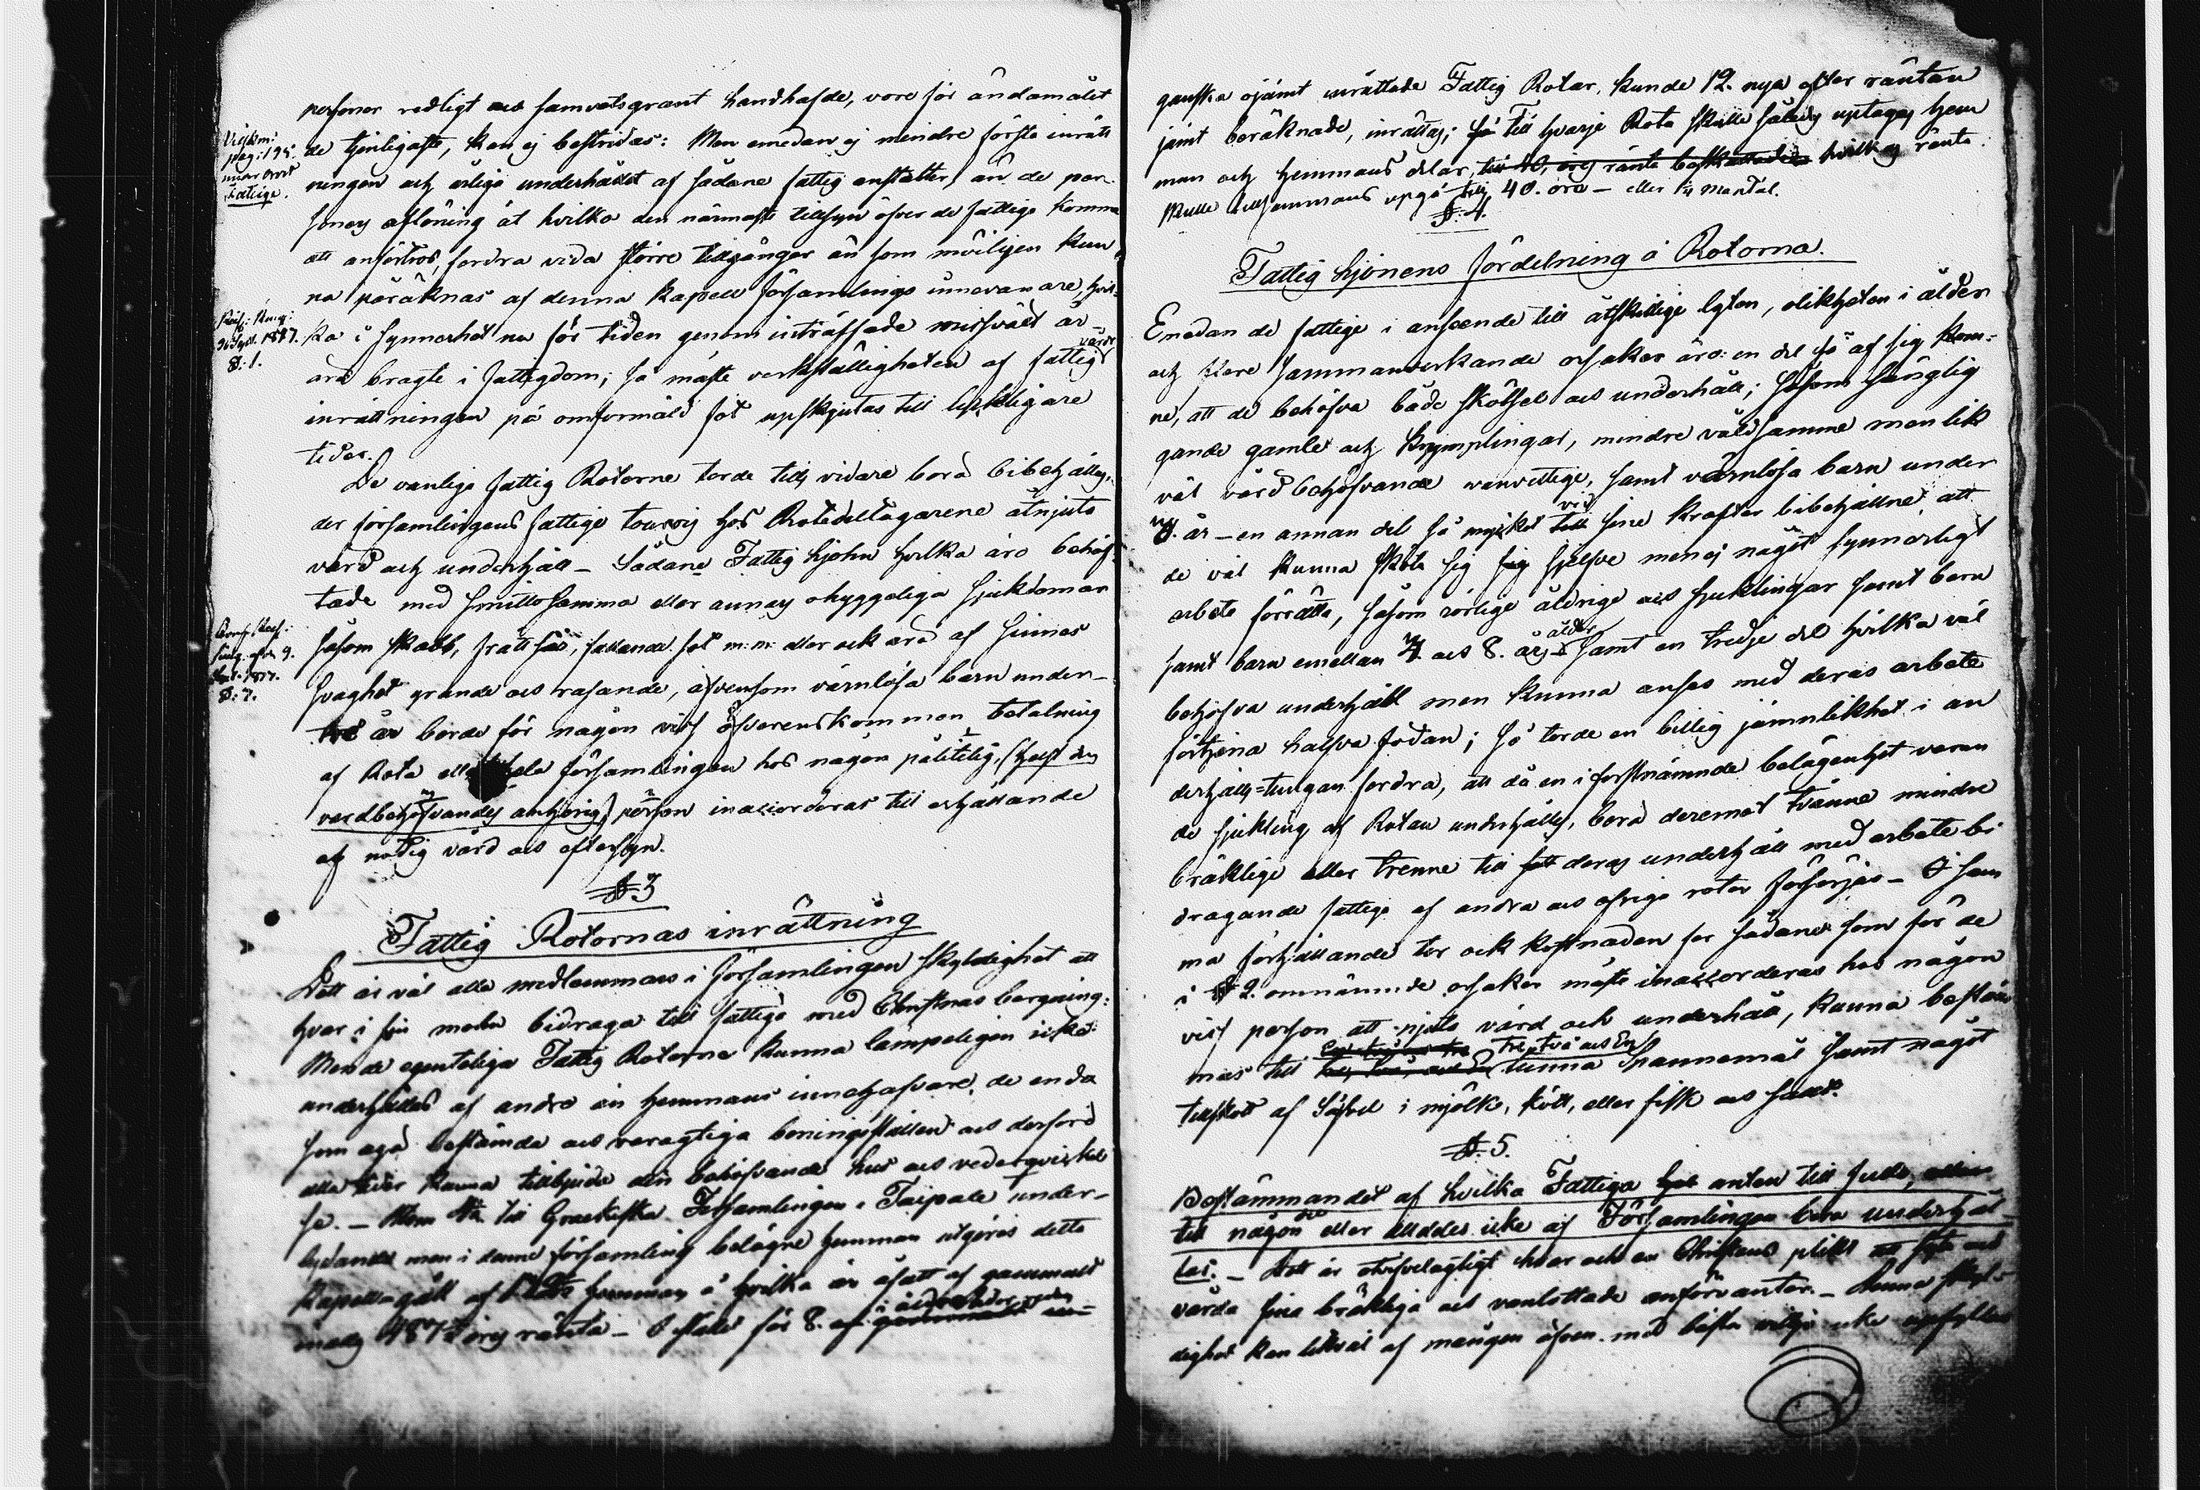 personer redligt och samvetsgrant handhafde, vore för ändamålet
de tjenligaste, kan ej bestridas: Men emedan ej mindre första inrätt
ningen och årliga underhållet af sådane fattig anstalter, än de per
soners aflöning åt hvilka den närmaste tillsyn öfver de fattige komme
att anförtros, fordra vida större tillgångar än som möiligen kun
na påräknas af denna Kapell Församlings innevånare, hvil-
ka i synnerhet nu för tiden genom inträffade missväxt år
äro bragte i fattigdom; så måste verkställigheten af fattig vårds
inrättningen på omförmäld sät upskjutas till lykligare
tider.
De vanliga fattig Rotorne torde tills vidare böra bibehållas,
der församlingens fattige tourvis hos Rotedeltagarene åtnjuta
vård och underhåll – Sådane Fattig Hjohn hvilka äro behäf-
tade med smittosamma eller annars ohyggeliga sjukdomar
såsom skabb, frätt sår, fallande sot m: m: eller ock äro af sinnes
svaghet grande och rasande, äfvensom värnlösa barn under
två år borde för någon viss öfverenskommen betalning
af Rota eller hela församlingen hos någon pålitelig, (helst den
vårdbehöfvandes anhörig) person inaccorderas till erhållande
af nödig vård och eftersyn.
§ 3
Fattig Rotornas inrättning
Dett är väl alla medlemmars i församlingen skyldighet att
hvar i sin mohn bidraga till fattiga med Christnas bergning:
Men de egenteliga Fattig Rotorne kunna lämpeligen icke
underhållas af andra än hemmans innehafvare, de enda
som äga bestämda och varagtiga boningsställen och derföre
alla tider kunna tillbjuda den behöfvande hus och vederqvickel
se. – till Græckiska Församlingen i Taipale under-
lydande men i denna församling belägne hemman utgöres detta
Kapell-gäll af hemman å hvilka är åsatt af gammalt
räntta – I stället för 8.
Vilskm:
pag: 195.
Fattige.
30 Sept. 1857.
§. 1.
§. 7.
ganska ojämt inrättade Fattig Rotar, kunde 12. nya efter räntan
jämt beräknade, inrättas; så Till hvarje Rota skulle således uptagas hem
man och hemmans delar, hvilkas ränta
skulle tillsammans upgå till 40. öre – eller 1/4 mantal.
§. 4.
Fattig Hjonens fördelning å Rotorna.
Emedan de fattige i anseende till åtskillige lyten, olikheten i ålder
och flere sammanverkande orsaker äro: en del så af sig kom-
ne, att de behöfva både skötsel och underhåll; såsom sänglig
gande gamle och krymplingar, mindre våldsamme men lik
väl vård behöfvande vanvettige, samt värnlösa barn under
år – en annan del så mycket vid sine krafter bibehållne, att
de väl kunna sköta sig sjelfve men ej något synnerligt
arbete förrätta, såsom rörlige åldrige och sjuklingar samt barn
samt barn emellan och 8. års ålder samt en tredje del hvilka väl
behöfva underhåll men kunna anses med deras arbete
förtjena halfva födan; så torde en billig jämnlikhet i un
derhålls-tungan fordra, att då en i förstnämnde belägenhet varan
de sjukling af Rotan underhålles, bora deremot tvänne mindre
bräklige eller trenne till deras underhåll med arbete bi
dragande fattige af andra och öfriga rotor försörjas – I sam
ma förhållande tor ock kostnaden för sådane som för de
i § 2. omnämnde orsaker måste inaccorderas hos någon
viss person att njuta vård och underhåll, kunna bestäm
mas till tre två och En tunna Spannemål samt något
tillskott af Säfvel i mjölk, kött, eller fisk och Salt.
§. 5.
Bestämmandet af hvilka Fattiga anten till fullo,
till någon del eller alldeles icke af Församlingen böra underhål
las. – Dett är otvifvelagtigt hvar och en Christens plikt
vårda sina bräkliga och vanlottade anförvanter. – Denna skyl-
dighet kan likväl af mången äfven med bästa vilja icke upfyllas